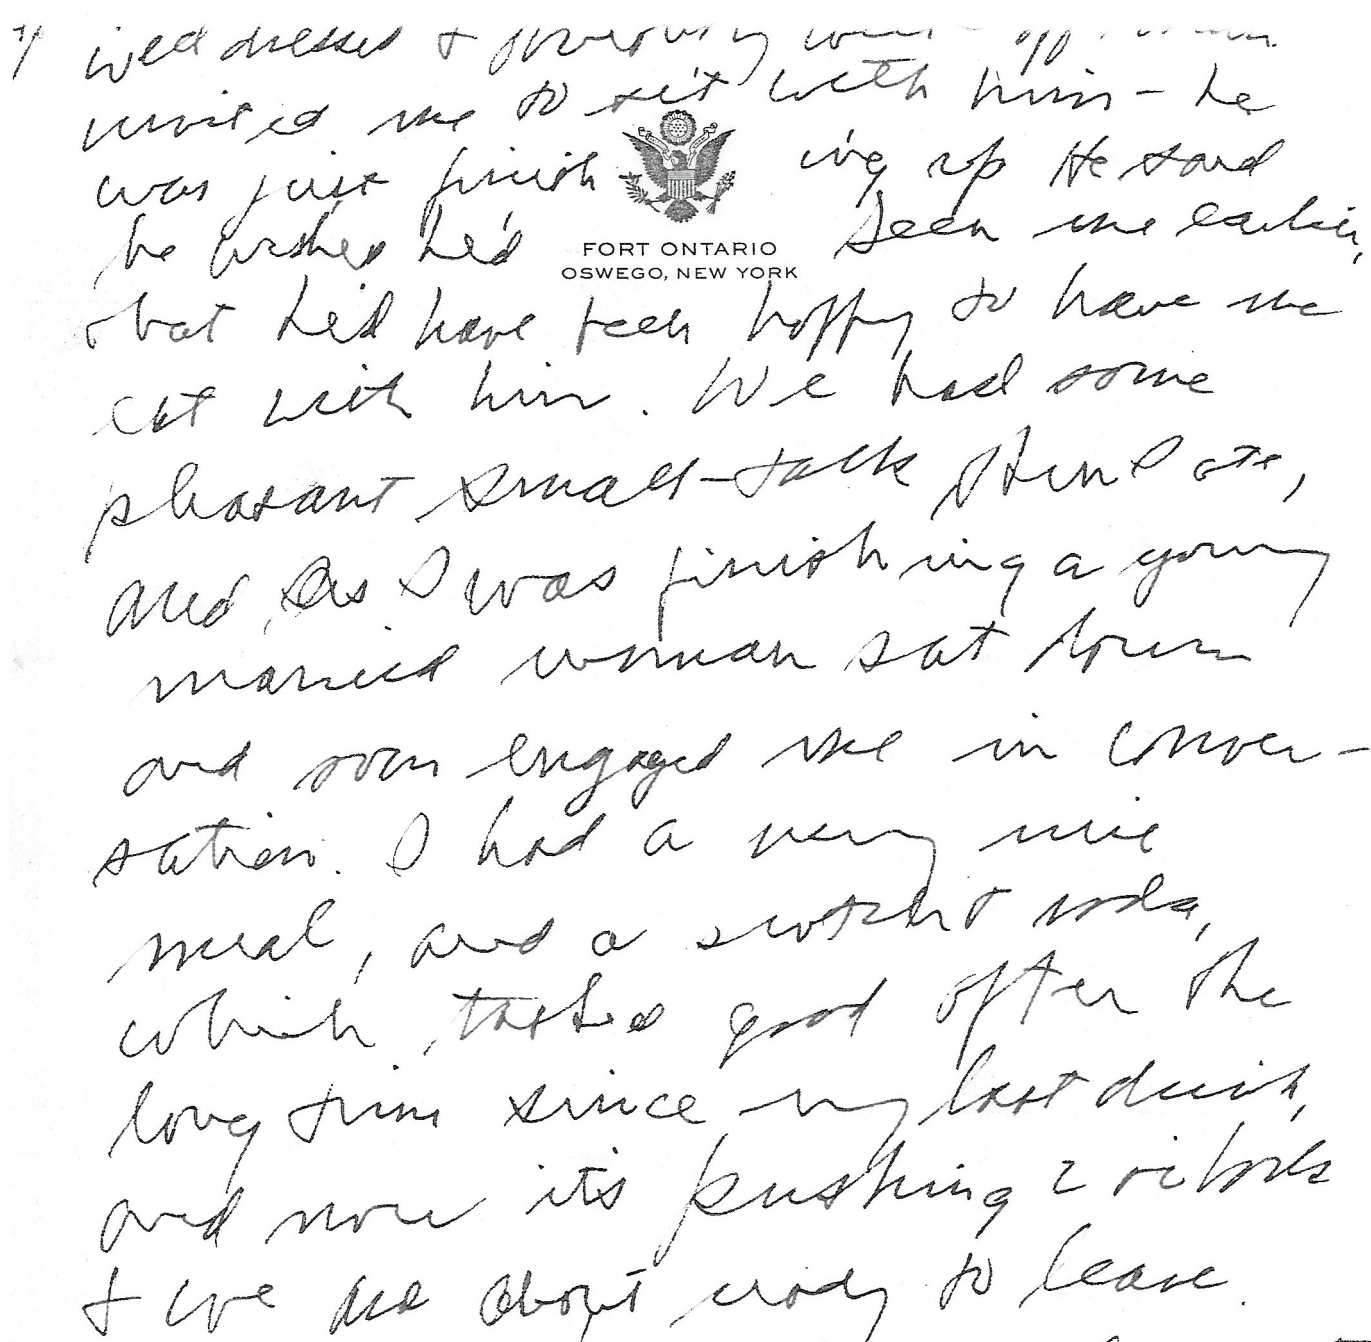 well dressed &
invited me to sit with him - he
was just finish ing up He said
he wished he'd seen me earlier,
FORT ONTARIO
OSWEGO, NEW YORK
that he'd have been happy to have me
eat with him. We had some
pleasant small-talk then I ate,
and as I was finishing a young
married woman sat down
and soon engaged me in conver-
sation. I had a very nice
meal, and a scotch & soda,
which tasted good after the
long time since my last drink,
and now it's pushing 2 o'clock
& we are about ready to leave.